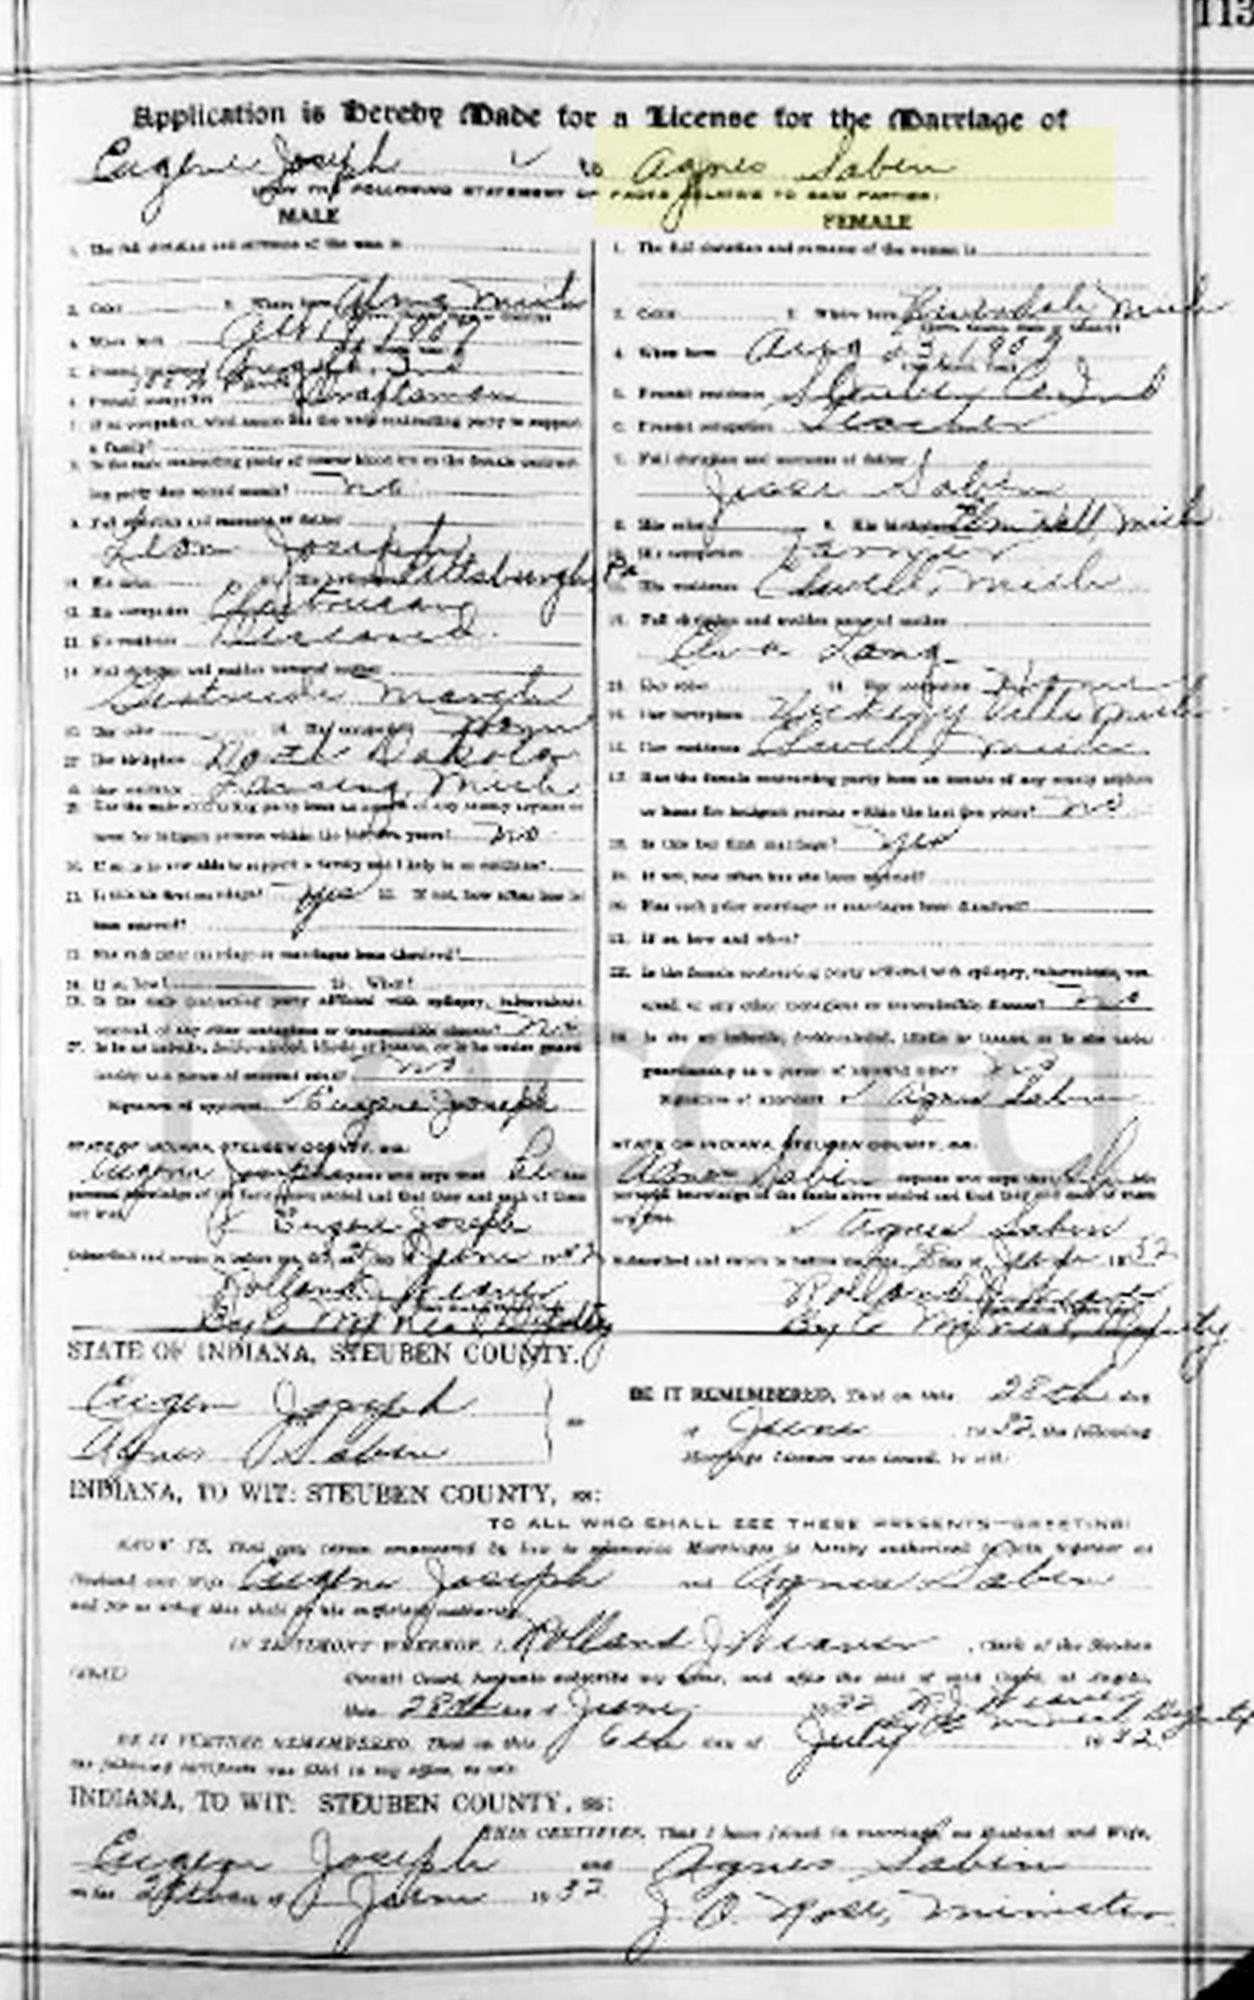 113
Application is Hereby Made for a License for the Marriage of
Eugene Joseph to Agnes Sabin
UPON THE FOLLOWING STATEMENT OF FACTS RELATIVE TO SAID PARTIES:
MALE
1. The full christian and surname of the man is
2. Color 3. Where born Alma Mich
4. When born 1909
5. Present residence
6. Present occupation Draftsman
7. If no occupation, what means has the male contracting party to support
a family?
8. Is the male contracting party of nearer blood kin to the female contract-
ing party than second cousin? no
9. Full christian and surname of father
Leon Joseph
10. His color 11. His birthplace Pittsburgh Pa
12. His occupation
13. His residence Deceased
14. Full christian and maiden name of mother
Gertrude
15. Her color 16. Her occupation Home
17. Her birthplace North Dakota
18. Her residence Lansing, Mich
19. Has the male contracting party been an inmate of any county asylum or
home for indigent persons within the last five years? no
20. If so is he now able to support a family and likely to so continue?
21. Is this his first marriage? yes 22. If not, how often has he
been married?
23. Has such prior marriage or marriages been dissolved?
24. If so, how? 25. When?
26. Is the male contracting party afflicted with epilepsy, tuberculosis,
venereal, or any other contagious or transmissible disease? no
27. Is he an imbecile, feeble-minded, idiotic or insane, or is he under guard-
ianship as a person of unsound mind? no
Signature of applicant Eugene Joseph
STATE OF INDIANA, STEUBEN COUNTY, ss:
Eugene Joseph deposes and says that he has
personal knowledge of the facts above stated and that they and each of them
are true.
Eugene Joseph
Subscribed and sworn to before me, this day of June 1932
Rolland J Weaver
By McNeal Deputy
FEMALE
1. The full christian and surname of the woman is
2. Color 3. Where born Mich
4. When born Aug 23, 1909
5. Present residence Steuben Co Ind
6. Present occupation Teacher
7. Full christian and surname of father
Jesse Sabin
8. His color 9. His birthplace Elm Hall, Mich
10. His occupation Farmer
11. His residence Elwell, Mich
12. Full christian and maiden name of mother
Elva Lang
13. Her color 14. Her occupation Home
15. Her birthplace Mich
16. Her residence Elwell, Mich
17. Has the female contracting party been an inmate of any county asylum
or home for indigent persons within the last five years? no
18. Is this her first marriage? yes
19. If not, how often has she been married?
20. Has such prior marriage or marriages been dissolved?
21. If so, how and when?
22. Is the female contracting party afflicted with epilepsy, tuberculosis, ven-
ereal, or any other contagious or transmissible disease? no
23. Is she an imbecile, feeble-minded, idiotic or insane, or is she under
guardianship as a person of unsound mind? no
Signature of applicant Agnes Sabin
STATE OF INDIANA, STEUBEN COUNTY, ss:
Agnes Sabin deposes and says that she has
personal knowledge of the facts above stated and that they and each of them
are true.
Agnes Sabin
Subscribed and sworn to before me, this day of June 1932
Rolland J Weaver
By McNeal, Deputy
Record
STATE OF INDIANA, STEUBEN COUNTY.
Eugene Joseph
Agnes Sabin
BE IT REMEMBERED, That on this 28th day
of June 1932, the following
Marriage License was issued, to wit:
INDIANA, TO WIT: STEUBEN COUNTY, ss:
TO ALL WHO SHALL SEE THESE PRESENTS—GREETING:
KNOW YE, That any person empowered by law to solemnize Marriages is hereby authorized to join together as
Husband and Wife Eugene Joseph and Agnes Sabin
and for so doing this shall be his sufficient authority.
IN TESTIMONY WHEREOF, I, Rolland J Weaver, Clerk of the Steuben
(SEAL) Circuit Court, hereunto subscribe my name, and affix the seal of said Court, at Angola,
this 28th day of June 1932 R J Weaver McNeal Deputy
BE IT FURTHER REMEMBERED, That on this 6th day of July 1932
the following certificate was filed in my office, to wit:
INDIANA, TO WIT: STEUBEN COUNTY, ss:
THIS CERTIFIES, That I have joined in marriage, as Husband and Wife,
Eugene Joseph and Agnes Sabin
on the day of June 1932
J. O. Rose, Minister